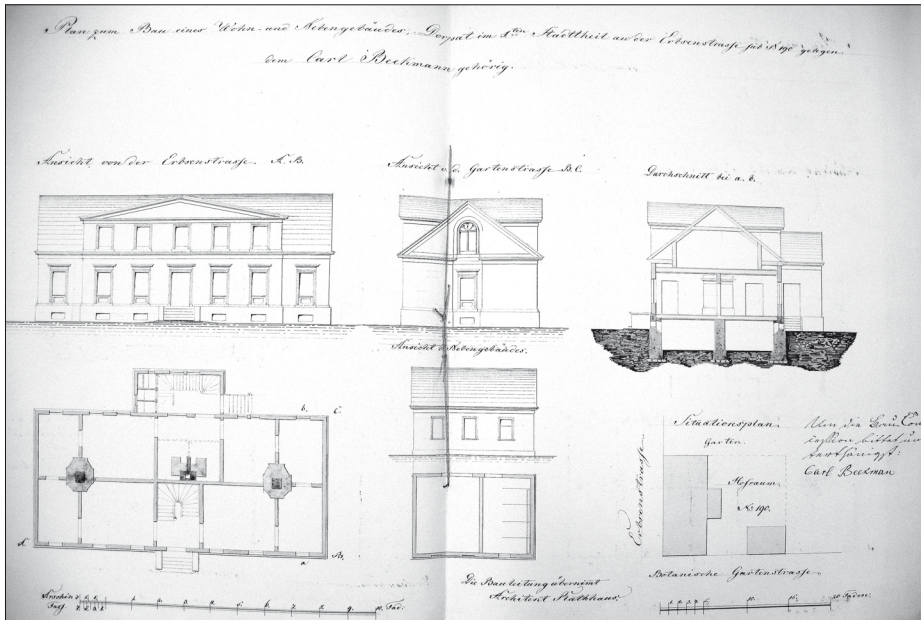 Plan zum Bau eines Wohn- und Nebengebäudes, Dorpat im 2ten Stadttheil an der Erbsenstrasse sub № 190 gelegen
dem Carl Beckmann gehörig.
Ansicht von der Erbsenstrasse. A. B.
Ansicht v. d. Gartenstrasse B. C.
Durchschnitt bei a. b.
Ansicht d. Nebengebäudes.
b.
C.
A.
B.
a
Situationsplan.
Garten.
Hofraum.
№ 190.
Erbsenstrasse
Botanische Gartenstrasse.
Um die Bau Con
cession bittet un
terthänigst:
Carl Beckman
Die Bauleitung übernimt
Architect Rathhaus.
Arschin
Fuss.
10. Fad:
20 Faden.